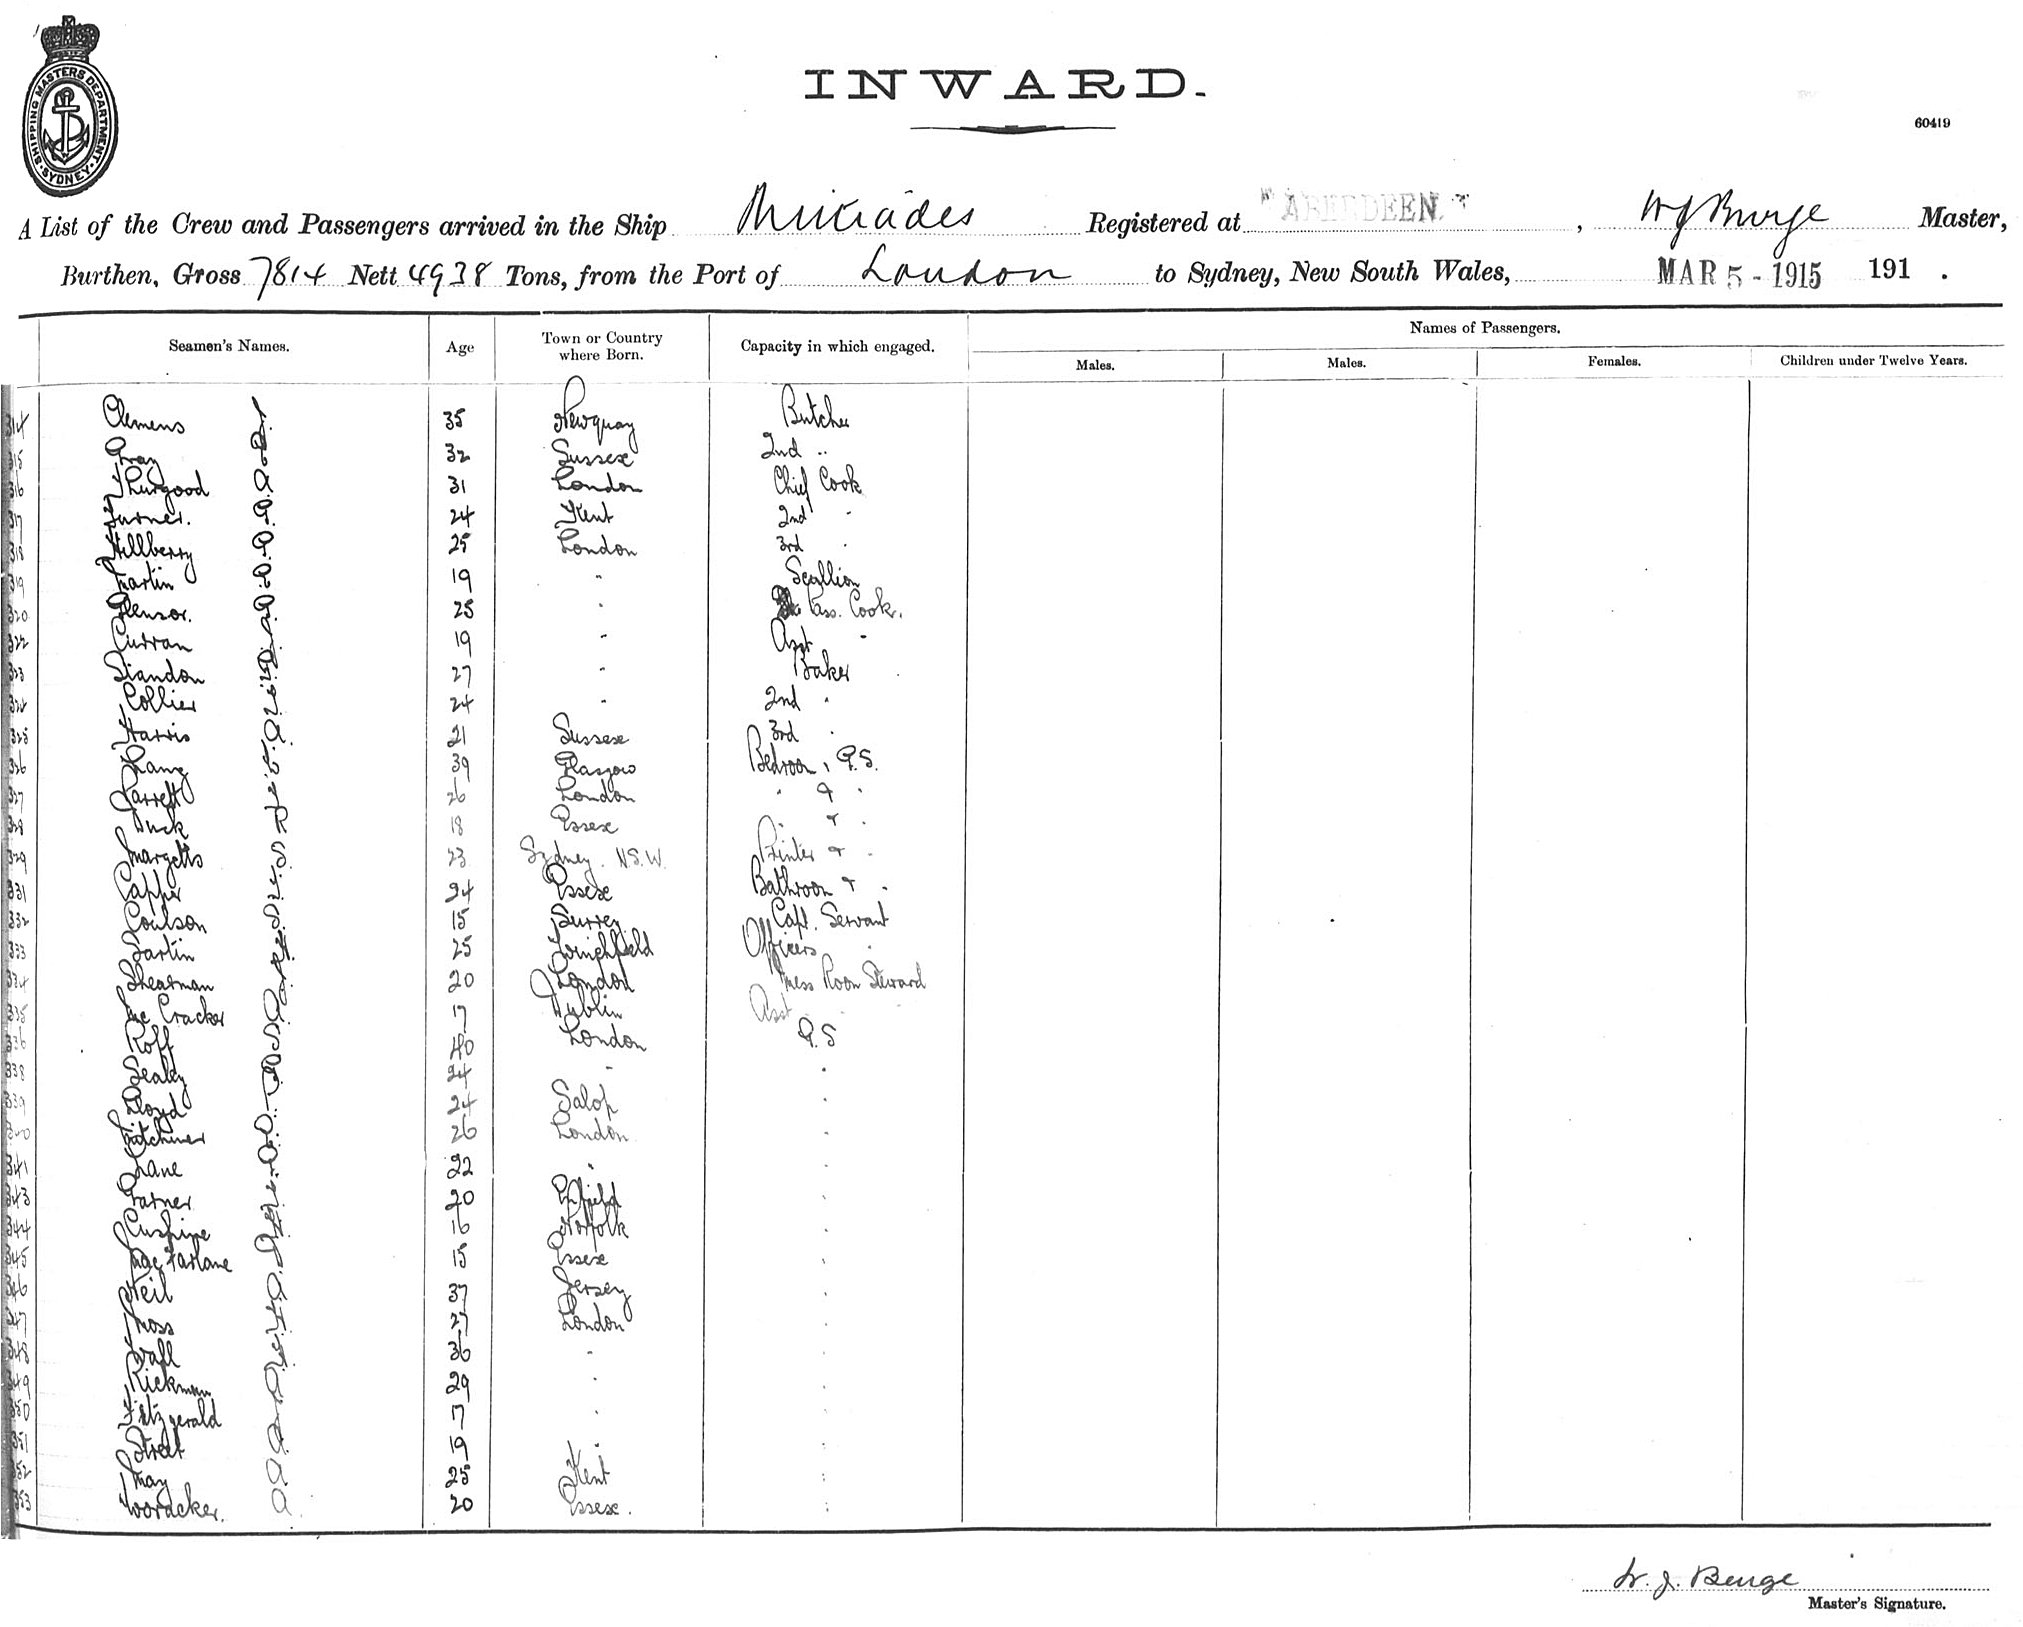 SHIPPING MASTERS DEPARTMENT SYDNEY
INWARD.
60419
A List of the Crew and Passengers arrived in the Ship Miltiades Registered at "ABERDEEN." , Master,
Burthen, Gross 7814 Nett 4938 Tons, from the Port of London to Sydney, New South Wales, MAR 5 - 1915 191 .
Names of Passengers.
Seamen's Names. Age Town or Country where Born. Capacity in which engaged. Males. Males. Females. Children under Twelve Years.
314 Clemens 35 Newquay Butcher
315 Gray 32 Sussex 2nd "
316 Thurgood 31 London Chief Cook
317 Turner. 24 Kent 2nd "
318 Hellberry 25 London 3rd "
319 Martin 19 " Scullion
320 25 " Pass. Cook.
322 Curran 19 " Asst "
323 Standon 27 " Baker
324 Collier 24 " 2nd "
325 Harris 21 Sussex 3rd "
326 Lang 39 Glasgow Bedroom & G.S.
327 Jarrett 26 London " & "
328 18 Essex " & "
329 Margetts 23 Sydney. N.S.W. Printer & "
331 Capper 24 Essex Bathroom & "
332 Coulson 15 Surrey Capt. Servant
333 Sartin 25 Officers "
334 Shearman 20 London Mess Room Steward
335 Mc Cracker 17 Dublin Asst "
336 Roff 40 London G.S
338 Sealey 24 " "
339 Lloyd 24 Salop "
340 26 London "
341 Lane 22 " "
343 Garner 20 Enfield "
344 16 Norfolk "
345 MacFarlane 15 Essex "
346 Neil 37 Jersey "
347 Moss 27 London "
348 36 " "
349 Rickman 29 " "
350 Fitzgerald 17 " "
351 Street 19 " "
352 May 25 Kent "
353 Woracker. 20 Essex. "
W. J. Burge
Master's Signature.